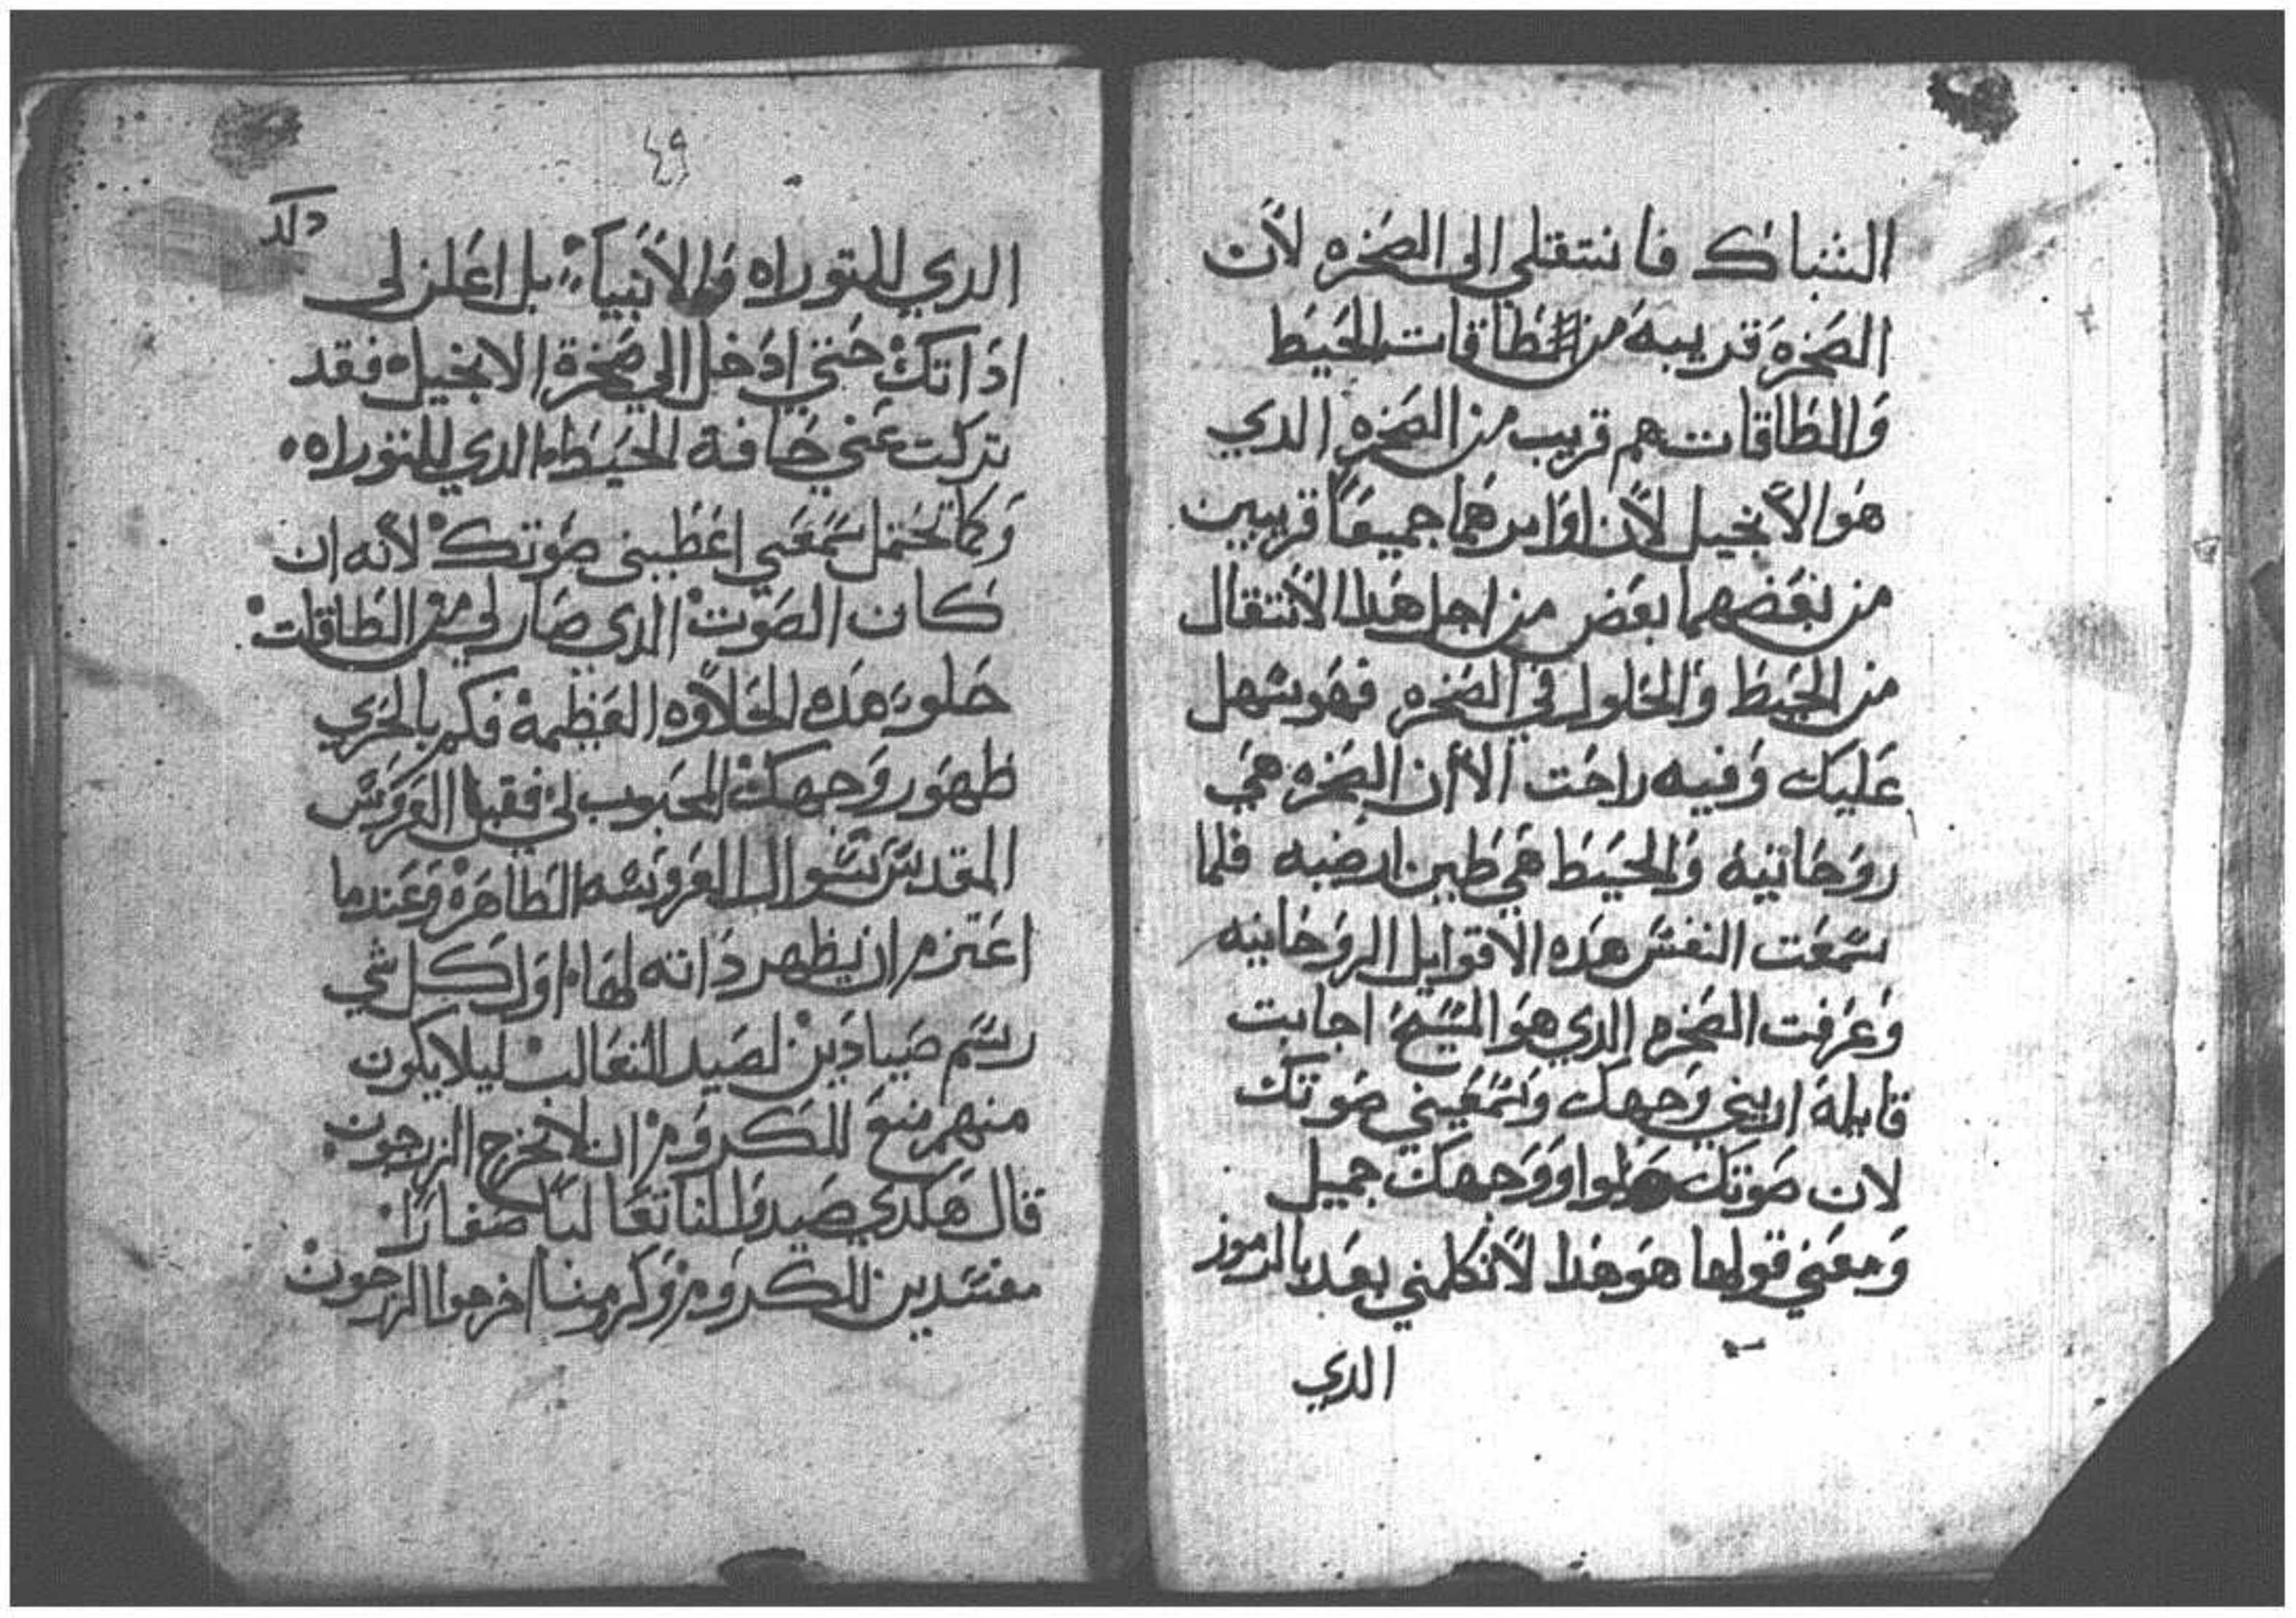 الشباك فانتقلي الى الصخره لان
الصخره قريبه من الطاقات الحيط
والطاقات هم قريب من الصخره الدي
هو الانجيل لان اوامرهما جميعا قريبين
من بعضهما بعض من اجل هدا الانتقال
من الحيط والحلول في الصخره فهو سهل
عليك وفيه راحت الا ان الصخره هي
روحانيه والحيط هي طين ارضيه فلما
سمعت النفس هده الاقوايل الروحانيه
وعرفت الصخره الدي هو المسيح اجابت
قايلة اريني وجهك وسمعيني صوتك
لان صوتك حلوا ووجهك جميل
ومعني قولها هو هدا لاتكلمني بعد بالرموز
الدي
٤٩
الدي للتوراه والانبياء بل اعلن لى
اداتك حتي ادخل الي صخرة الانجيل فقد
تركت عني حافة الحيط الدي للتوراه
وكما تحتمل سمعي اعطيني صوتك لانه ان
كان الصوت الدي صار لي من الطاقات
حلو هده الحلاوه العظيمه فكم بالحري
ظهور وجهك المحبوب لي فقبل العروس
المقدس سوال العروسه الطاهره وعندما
اعتزم ان يظهر داته لها اول كل شي
رسم صيادين لصيد التعالب ليلا يكون
منهم منع للكروم ان لا تخرج الزرجون
قال هكدي صيدوا لنا تعالبا صغارا
مفسدين للكروم وكرومنا اخرجوا الزرجون